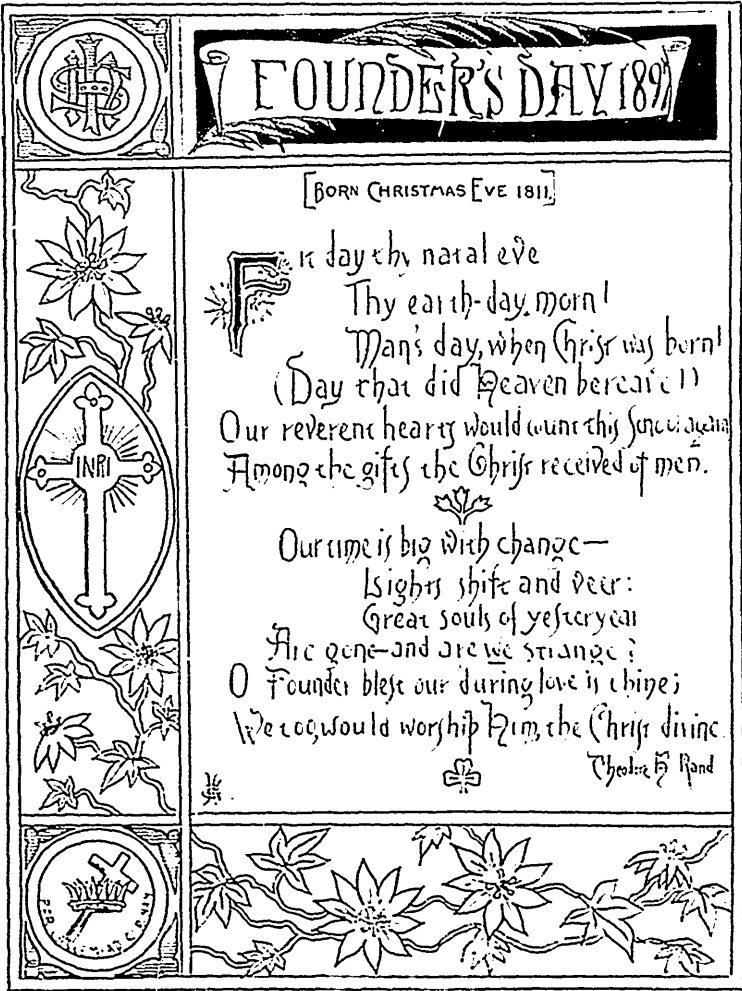 FOUNDER'S DAY 1897
[BORN CHRISTMAS EVE 1811.]
Fit day thy natal eve
Thy earth-day morn!
Man's day, when Christ was born!
(Day that did Heaven bereave!)
Our reverent hearts would count this again
Among the gifts the Christ received of men.
INRI
Our time is big with change—
Lights shift and veer:
Great souls of yesteryear
Are gone—and are we strange?
O Founder blest our during love is thine;
We too, would worship Him, the Christ divine.
Theodore H Rand
PER CRUCEM AD